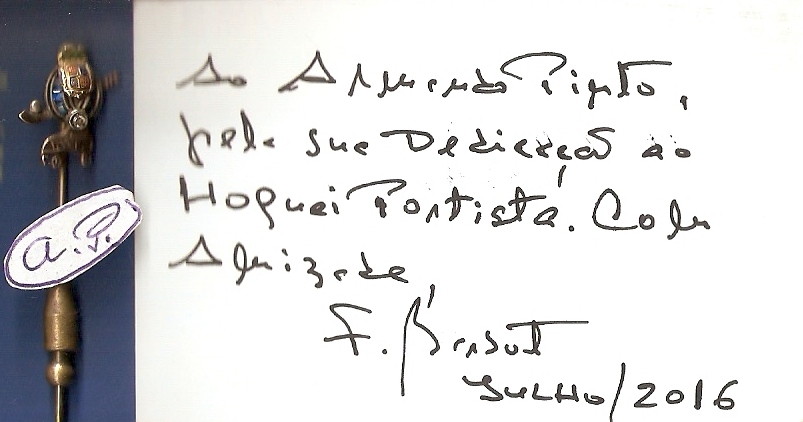 Ao Armando Pinto,
pela sua Dedicação ao
Hoquei Portista. Com
Amizade,
F.
JULHO/2016
a.P.